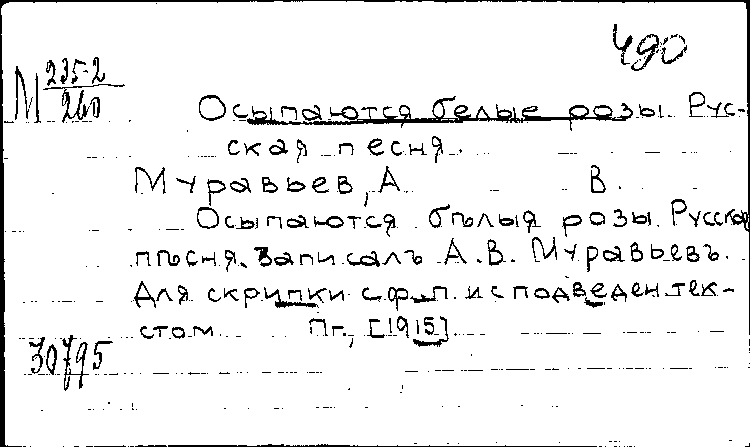 490
М 235-2
260
Осыпаются белые розы. Рус-
ская песня.
Муравьев, А В.
Осыпаются бѣлыя розы. Русская
пѣсня. Записалъ А.В. Муравьевъ.
Для скрипки с ф.-п. и с подведен. тек-
стом Пг., [1915].
30795